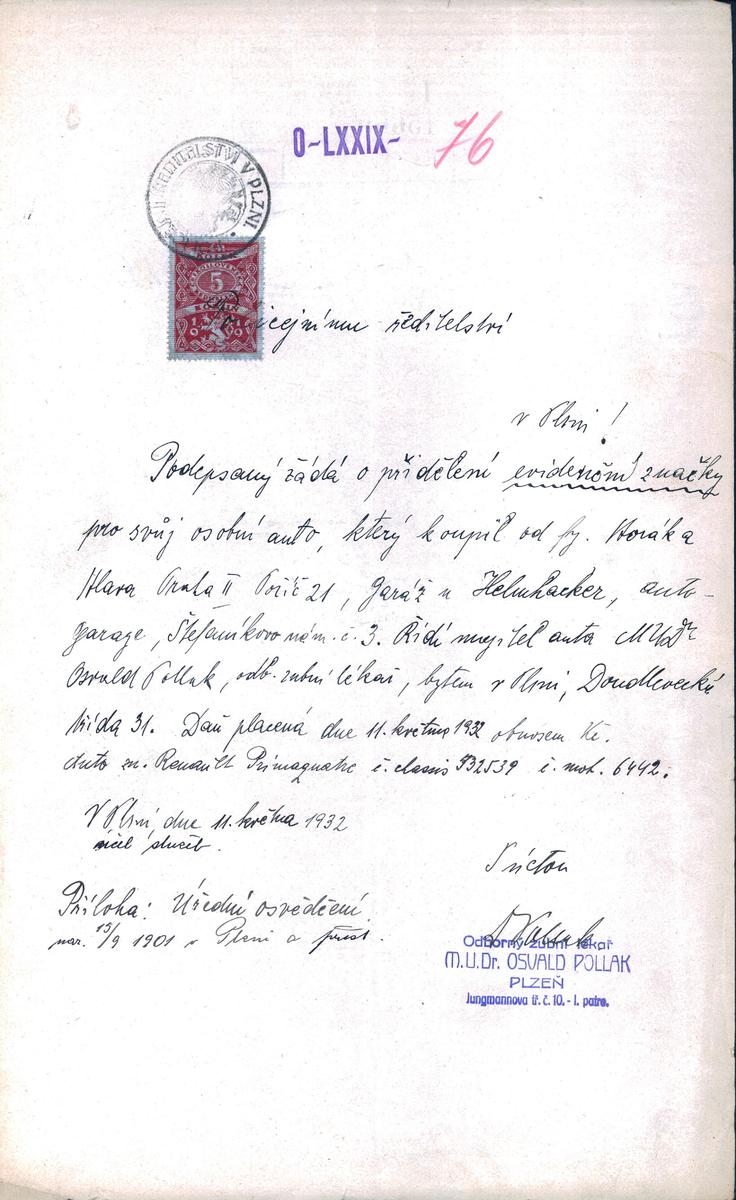 O-LXXIX- 76
ŘEDITELSTVÍ V PLZNI.
5
icejnímu ředitelství
v Plzni!
Podepsaný žádá o přidělení evidenční značky
pro svůj osobní auto, který koupil od fy. Horák a
Hlava Praha II Poříč 21, Garáž u Helmhacker, auto-
garage, Štefanikovo nám. č. 3. Řídí majitel auta MUDr
Osvald Pollak, odb. zubní lékař, bytem v Plzni, Doudlevecká
třída 31. Daň placená dne 11. května 1932 obnosem Kč.
Auto zn. Renault č. chassis 532539 č. mot. 6442.
V Plzni, dne 11. května 1932
účel služeb.
S úctou
Příloha: Úřední osvědčení
nar. 15/9 1901 v Plzni a přísl.
Odborný zubní lékař
M.U.Dr. OSVALD POLLAK
PLZEŇ
Jungmannova tř. č. 10. - I. patro.